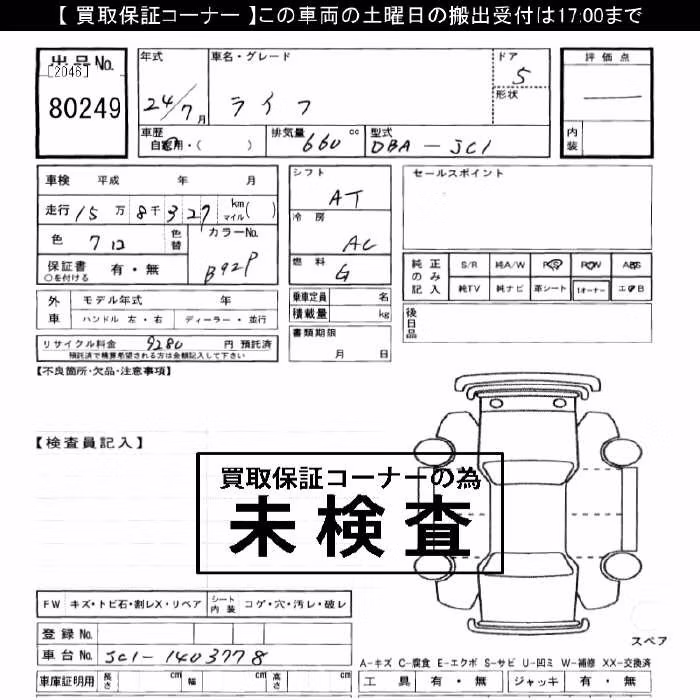 【 買取保証コーナー 】この車両の土曜日の搬出受付は17:00まで
出品No.
[2046]
80249
年式
24/7月
車名・グレード
ライフ
ドア
5
形状
評価点
内装
車歴
自家用・( )
排気量 660 cc
型式 DBA - JC1
車検 平成 年 月
走行 15万 8千 327 km マイル( )
色 クロ 色替
カラーNo.
B92P
保証書 有・無
○を付ける
シフト
AT
冷房
AC
燃料
G
セールスポイント
純正のみ記入
S/R 純A/W P/S P/W ABS
純TV 純ナビ 革シート 1オーナー エアB
外車
モデル年式 年
ハンドル 左・右 ディーラー・並行
乗車定員 名
積載量 kg
書類期限
月 日
後日品
リサイクル料金 9280 円 預託済
預託済で精算希望される方は金額記入して下さい
【不良箇所・欠品・注意事項】
【検査員記入】
買取保証コーナーの為
未検査
FW キズ・トビ石・割レX・リペア シート内装 コゲ・穴・汚レ・破レ
登録No.
車台No. JC1-1403778
車庫証明用 長さ cm 幅 cm 高さ cm
スペア
A-キズ C-腐食 E-エクボ S-サビ U-凹ミ W-補修 XX-交換済
工具 有・無 ジャッキ 有・無